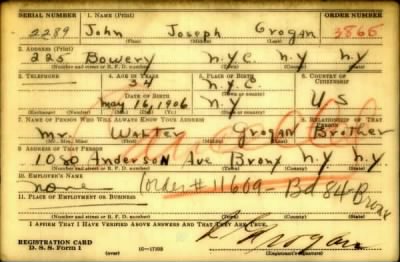 SERIAL NUMBER 1. NAME (Print) ORDER NUMBER
2289 John Joseph Grogan 3866
(First) (Middle) (Last)
2. ADDRESS (Print)
225 Bowery N.Y.C. N.Y N.Y
(Number and street or R. F. D. number) (Town) (County) (State)
3. TELEPHONE 4. AGE IN YEARS 5. PLACE OF BIRTH 6. COUNTRY OF CITIZENSHIP
34 N.Y.C
DATE OF BIRTH (Town or county)
May 16, 1906 N.Y U S
(Exchange) (Number) (Mo.) (Day) (Yr.) (State or country)
7. NAME OF PERSON WHO WILL ALWAYS KNOW YOUR ADDRESS 8. RELATIONSHIP OF THAT PERSON
Mr. Walter Grogan Brother
(Mr., Mrs., Miss) (First) (Middle) (Last)
9. ADDRESS OF THAT PERSON
1080 Anderson Ave Bronx N.Y. N.Y
(Number and street or R. F. D. number) (Town) (County) (State)
Cancelled
10. EMPLOYER'S NAME
none (order # 11609 - Bd 84 - Bronx
11. PLACE OF EMPLOYMENT OR BUSINESS
(Number and street or R. F. D. number) (Town) (County) (State)
I AFFIRM THAT I HAVE VERIFIED ABOVE ANSWERS AND THAT THEY ARE TRUE.
REGISTRATION CARD
D. S. S. Form 1 (over) 16-17105 (Registrant's signature)
Grogan